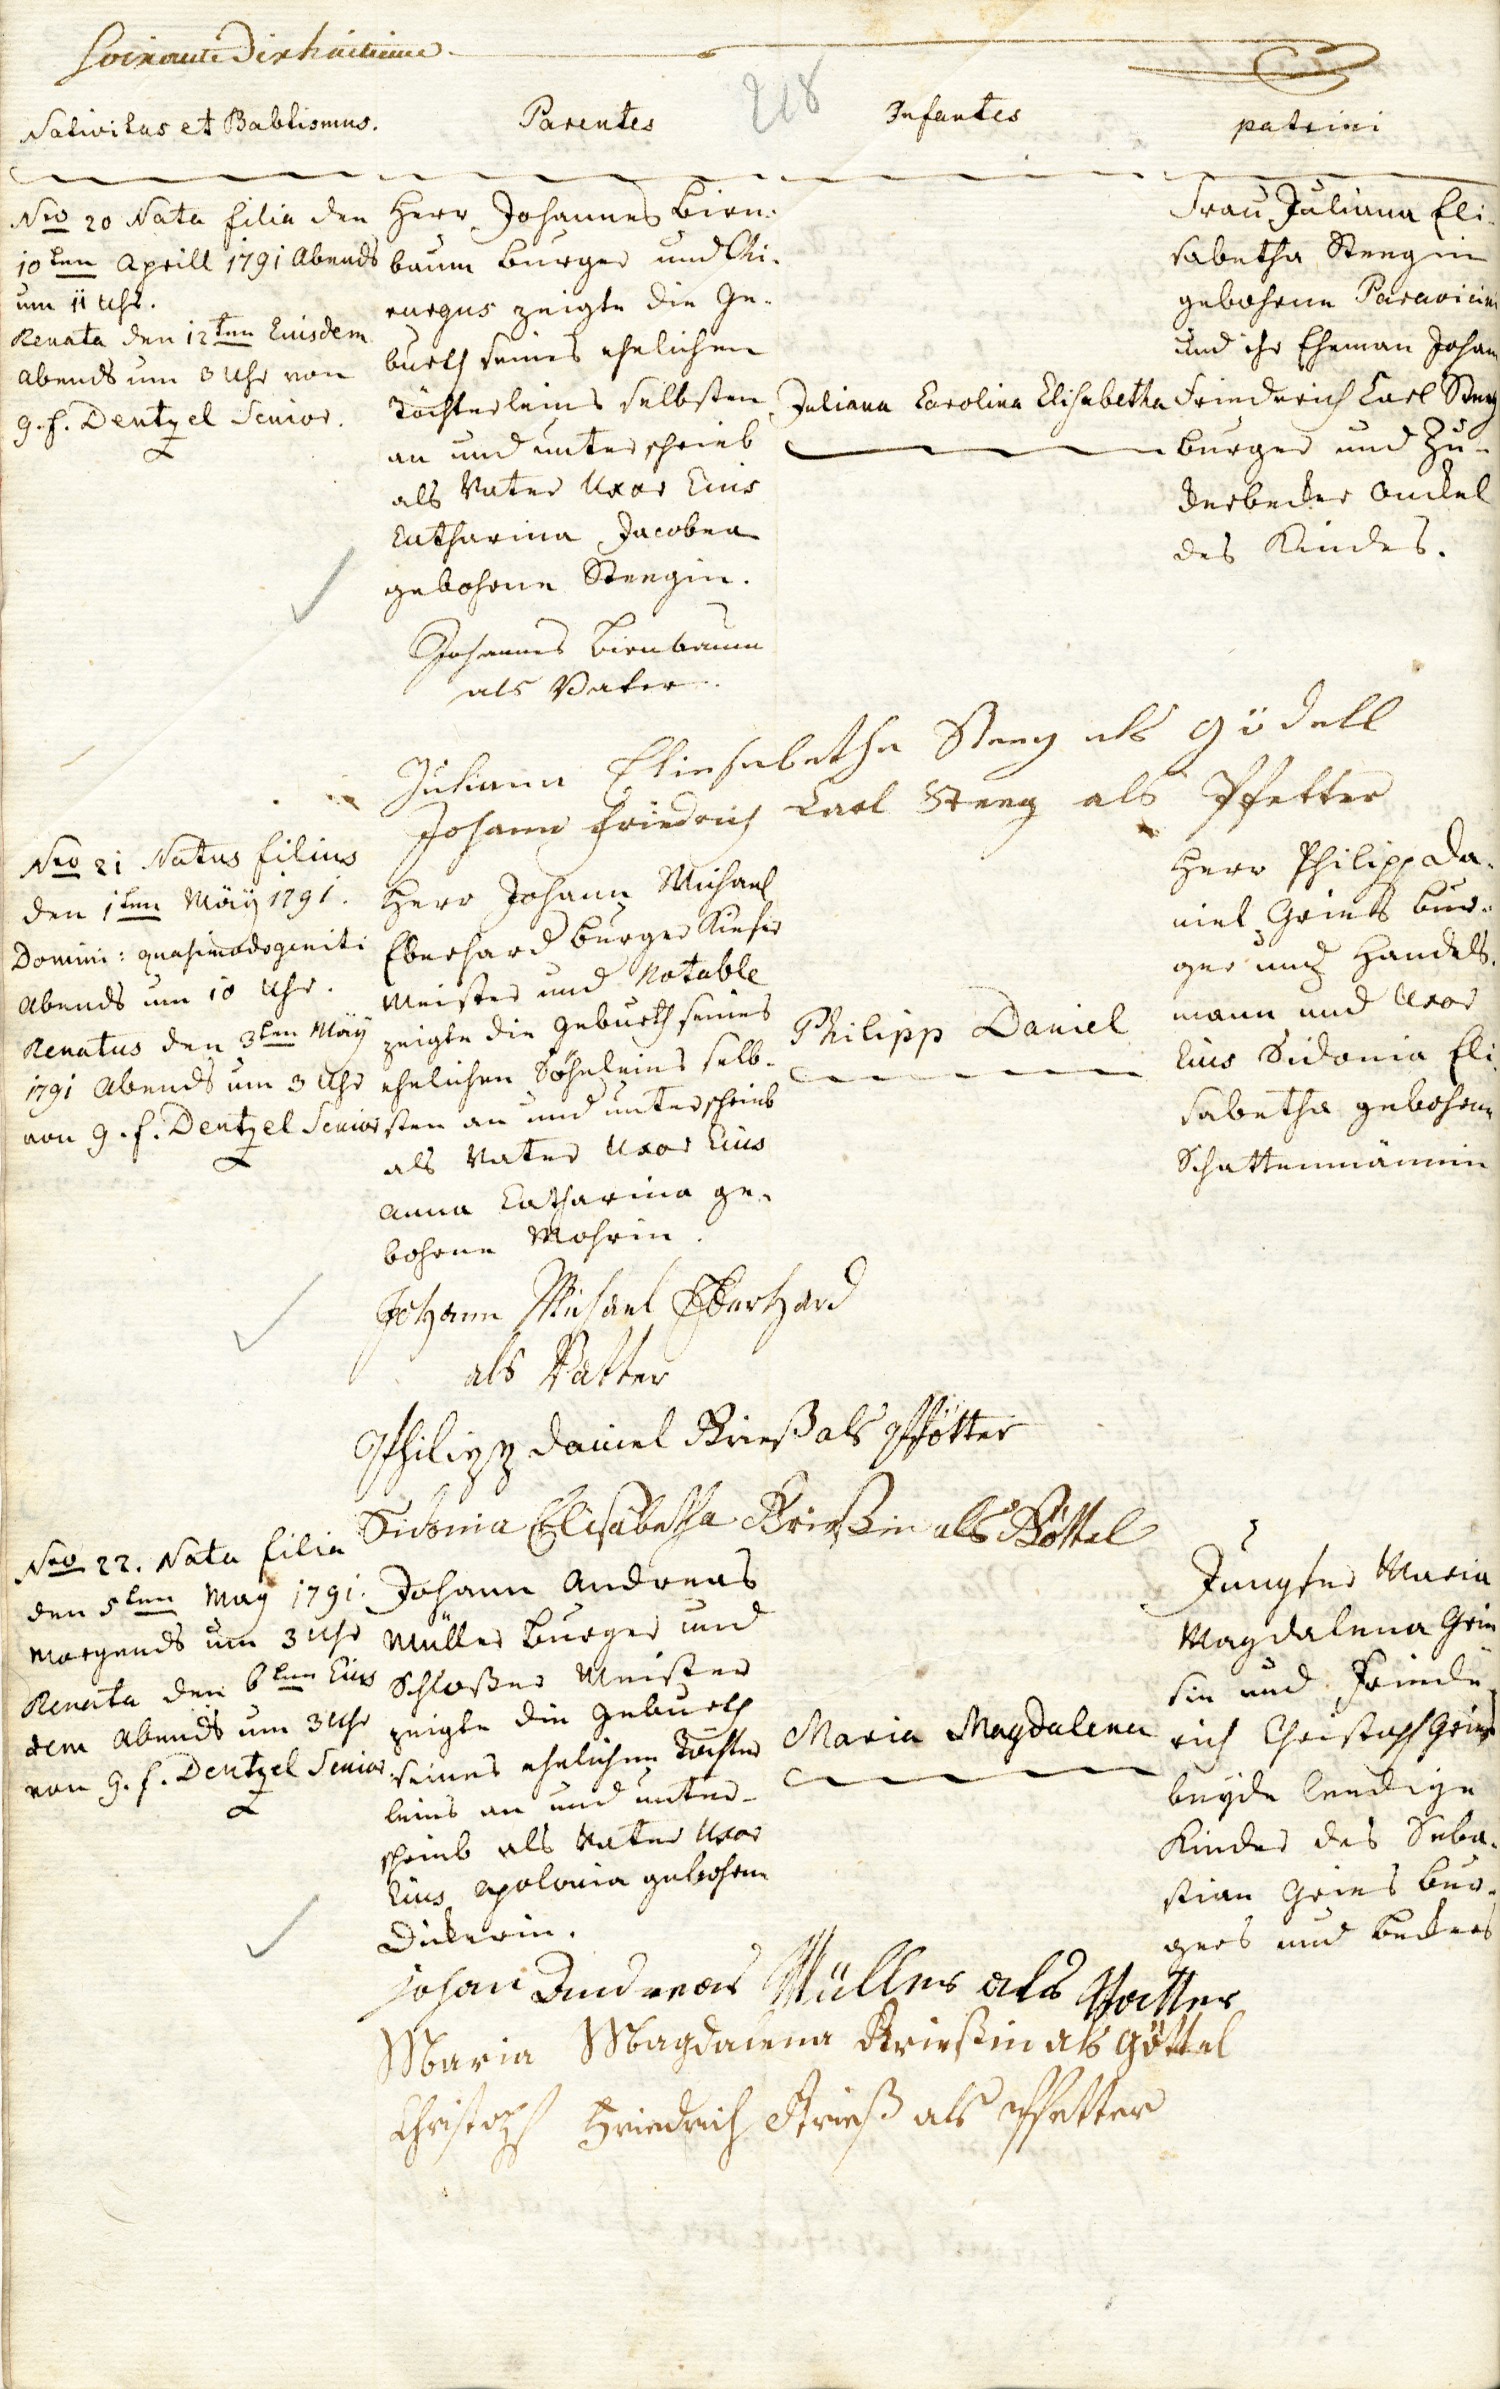 Soixante Dixhuitieme
218
Nativitas et Babtismus.
Parentes
Infantes
patrini
Nro 20 Nata filia den
10ten Aprill 1791 Abends
um 11 Uhr.
Renata den 12ten Eiusdem
Abends um 3 Uhr von
g. f. Dentzel Senior.
Herr Johannes Birn-
baum Burger und Chi-
rurgus zeigte die Ge-
burth seines ehelichen
Töchterleins selbsten
an und unterschrieb
als Vater Uxor Eius
Catharina Jacobea
gebohrne Steegin.
Johannes Birnbaum
als Vater
Juliana Carolina Elisabetha
Frau Juliana Eli-
sabetha Steegin
gebohrne Paravicini
und ihr Eheman Johann
Friederich Carl Steeg
Burger und Zu-
ckerbecker Onckel
des Kindes.
Juliana Eliesabetha Steeg als Gödell
Johann Friedrich Carl Steeg als Pfetter
Nro 21 Natus filius
den 1ten Mäÿ 1791.
Domini: quasimodogeniti
Abends um 10 Uhr.
Renatus den 3ten Mäÿ
1791 Abends um 3 Uhr
von g. f. Dentzel Senior
Herr Johann Michael
Eberhard Burger Kiefer
Meister und Notable
zeigte die Geburth seines
ehelichen Söhnleins selb-
sten an und unterschrieb
als Vater Uxor Eius
Anna Catharina ge-
bohrne Mohrin.
Johann Michael Eberhard
als Vatter
Philipp Daniel
Herr Philipp Da-
niel Gries Bur-
ger und Handels-
mann und Uxor
Eius Sidonia Eli-
sabetha gebohrne
Schattenmännin
Philipp Daniel Krieß als Pfötter
Sidonia Elisabetha Krießin als Göttel
Nro 22. Nata filia
den 5ten May 1791.
Morgends um 3 Uhr
Renata den 6ten Eius
dem Abends um 3 Uhr
von g. f. Dentzel Senior
Johann Andreas
Müller Burger und
Schloßer Meister
zeigte die Geburth
seines ehelichen Töchter
leins an und unter-
schrieb als Vater Uxor
Eius Apolonia gebohrne
Dickerin.
Maria Magdalena
Jungfer Maria
Magdalena Grie
sin und Friede-
rich Christoph Gries
beyde leedige
Kinder des Seba-
stian Gries Bur-
gers und Beckers
Johan Andreas Müller als Vatter
Maria Magdalena Krießin als Göttel
Christoph Friedrich Krieß als Pfetter